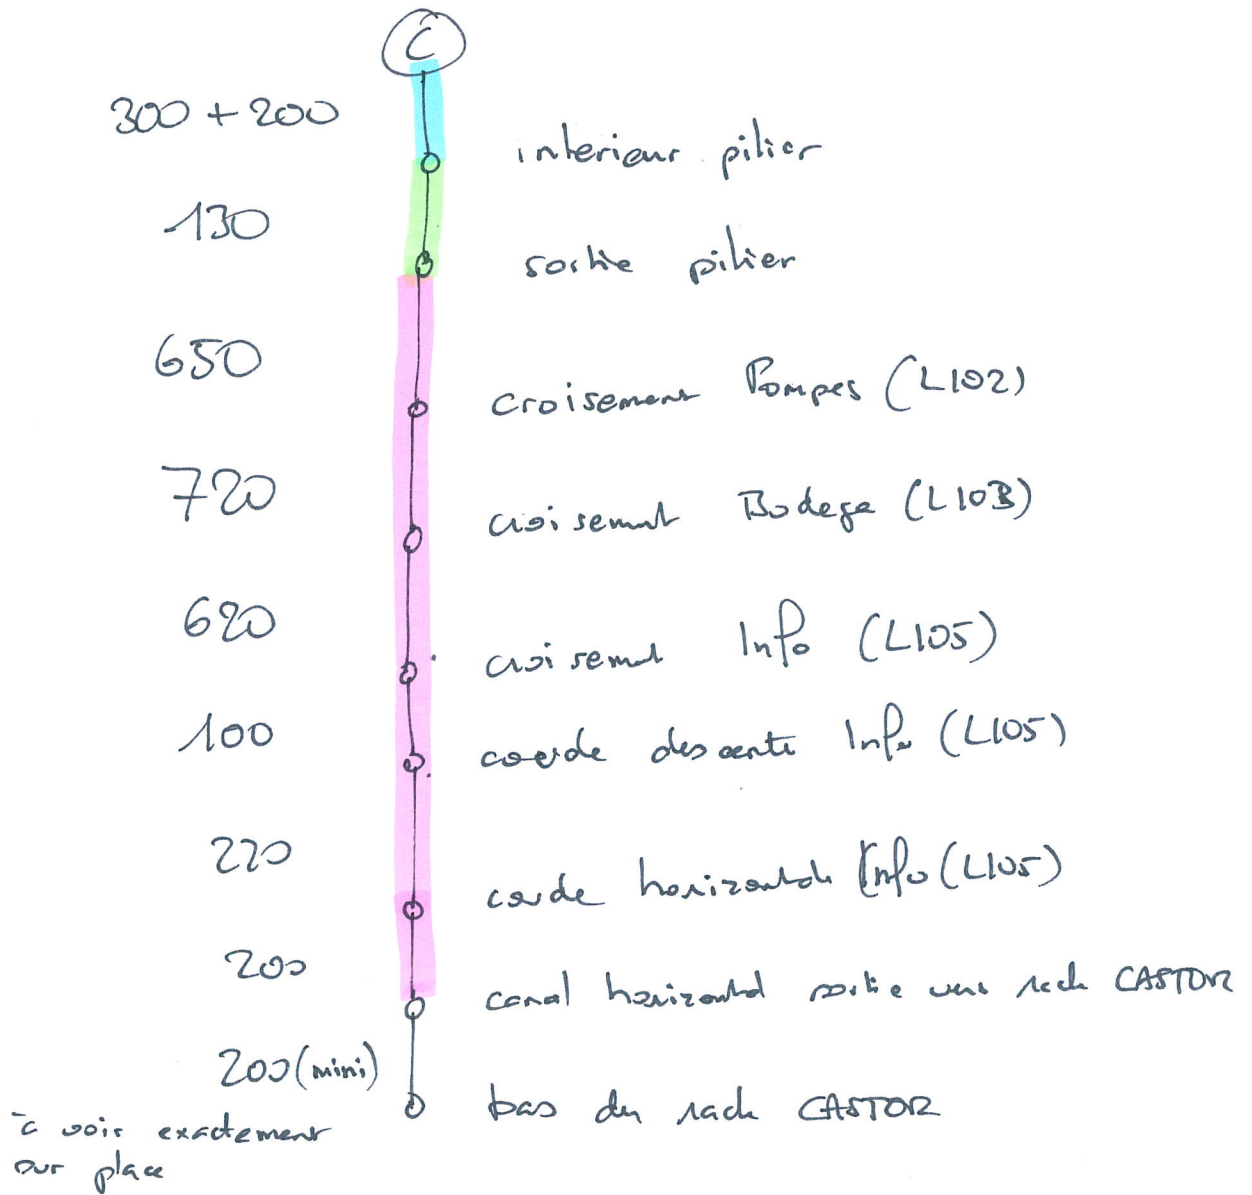 C
300 + 200
interieur pilier
130
sortie pilier
650
croisement Pompes (L102)
720
croisement Bodega (L103)
620
croisement Info (L105)
100
coude descente Info (L105)
220
coude horizontale Info (L105)
200
canal horizontal sortie vers rack CASTOR
200 (mini)
bas du rack CASTOR
à voir exactement
sur place